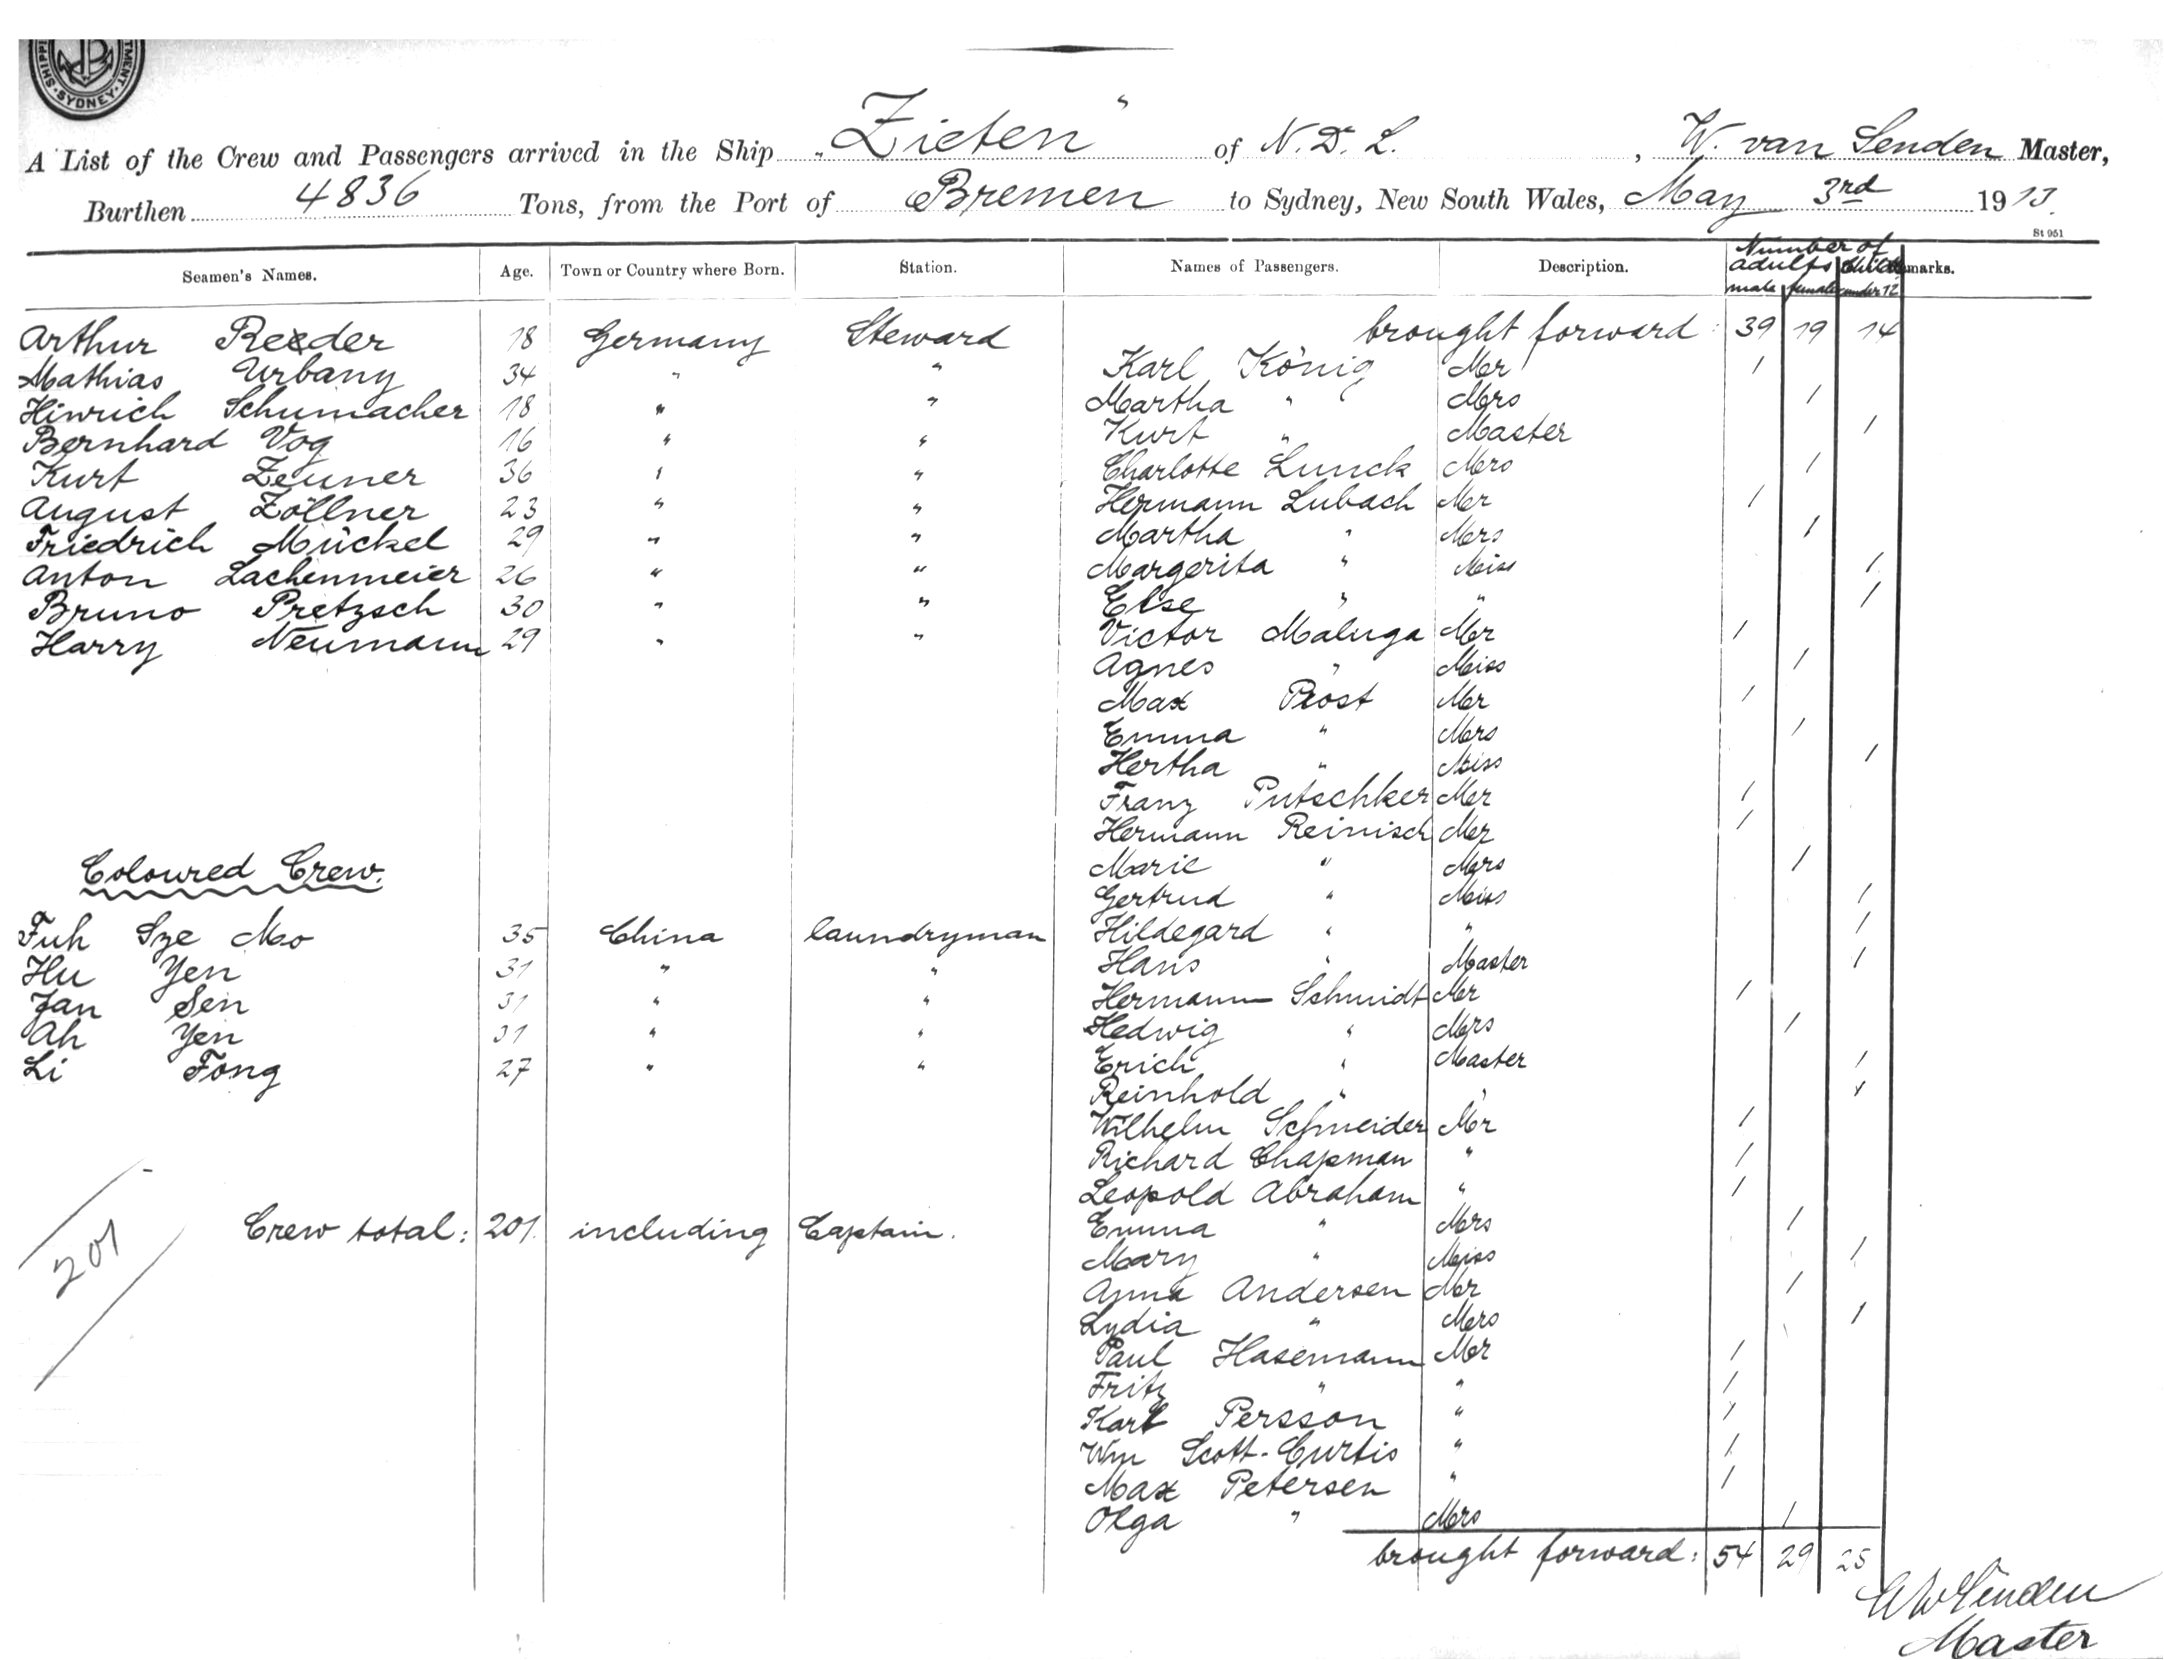 SHIPPI TMENT · SYDNEY ·
A List of the Crew and Passengers arrived in the Ship "Zieten" of N. D. L. , W. van Senden Master,
Burthen 4836 Tons, from the Port of Bremen to Sydney, New South Wales, May 3rd 1913.
St 951
Number of
adults
male female under 12
Seamen's Names. Age. Town or Country where Born. Station. Names of Passengers. Description. marks.
brought forward : 39 19 14
Arthur Reeder 18 Germany Steward
Mathias Urbany 34 " " Karl König Mr 1
Hinrich Schumacher 18 " " Martha " Mrs 1
Bernhard Vog 16 " " Kurt " Master 1
Kurt Zeuner 36 " " Charlotte Lunck Mrs 1
August Zöllner 23 " " Hermann Lubach Mr 1
Friedrich Mückel 29 " " Martha " Mrs 1
Anton Lachenmeier 26 " " Margerita " Miss 1
Bruno Pretzsch 30 " " Else " " 1
Harry Neumann 29 " " Victor Maluga Mr 1
Agnes " Miss 1
Max Prost Mr 1
Emma " Mrs 1
Hertha " Miss 1
Franz Putschker Mr 1
Hermann Reinisch Mr 1
Coloured Crew. Marie " Mrs 1
Gertrud " Miss 1
Fuh Sze Mo 35 China laundryman Hildegard " " 1
Hu Yen 31 " " Hans " Master 1
Jan Sen 31 " " Hermann Schmidt Mr 1
Ah Yen 31 " " Hedwig " Mrs 1
Li Fong 27 " " Erich " Master 1
Reinhold " " 1
Wilhelm Schneider Mr 1
Richard Chapman " 1
Leopold Abraham " 1
201 Crew total: 201. including Captain. Emma " Mrs 1
Mary " Miss 1
Anna Andersen Mr 1
Lydia " Mrs 1
Paul Hasemann Mr 1
Fritz " " 1
Karl Persson " 1
Wm Scott-Curtis " 1
Max Petersen " 1
Olga " Mrs 1
brought forward : 54 29 25
Senden
Master